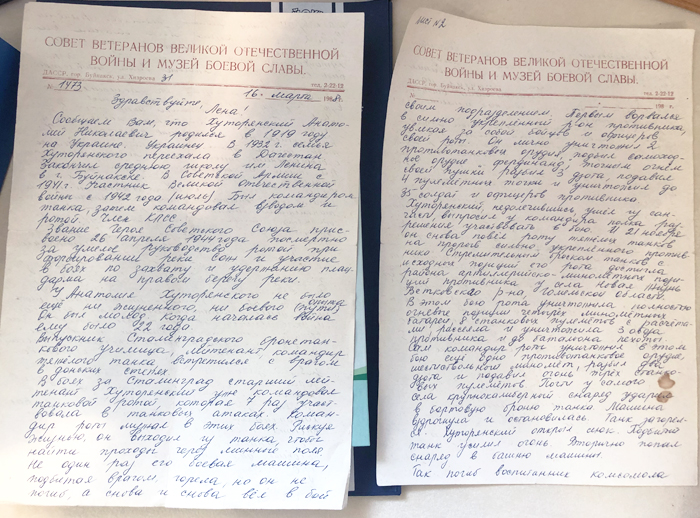 СОВЕТ ВЕТЕРАНОВ ВЕЛИКОЙ ОТЕЧЕСТВЕННОЙ
ВОЙНЫ И МУЗЕЙ БОЕВОЙ СЛАВЫ.
ДАССР, гор. Буйнакск, ул. Хизроева 31 тел. 2-22-12
№ 1473 16. марта 198
Здравствуйте, Лена!
Сообщаем Вам, что Хуторянский Анато-
лий Николаевич родился в 1919 году
на Украине. Украинец. В 1932 г. семья
Хуторянского переехала в Дагестан
Закончил среднюю школу им. Ленина
в г. Буйнакске. В Советской Армии с
1941 г. Участник Великой Отечественной
войны с 1942 года (июль). Был командиром
танка, затем командовал взводом и
ротой. Член КПСС.
Звание Героя Советского Союза прис-
воено 26 апреля 1944 года посмертно
за умелое руководство ротой при
форсировании реки Сож и участие
в боях по захвату и удержанию плац-
дарма на правом берегу реки.
У Анатолия Хуторянского не было
еще ни жизненного, ни боевого опыта
Он был молод. Когда началась война
ему было 22 года.
Выпускник Сталинградского бронетан-
кового училища, лейтенант командир
тяжелого танка встретился с врагом
в донских степях.
В боях за Сталинград старший лей-
тенант Хуторянский уже командовал
танковой ротой, которая 7 раз участ-
вовала в танковых атаках. Коман-
дир роты мужал в этих боях. Рискуя
жизнью, он выходил из танка, чтобы
найти проходы через минные поля
Не один раз его боевая машина,
подбитая врагом, горела, но он не
погиб, а снова и снова вёл в бой
Лист № 2
СОВЕТ ВЕТЕРАНОВ ВЕЛИКОЙ ОТЕЧЕСТВЕННОЙ
ВОЙНЫ И МУЗЕЙ БОЕВОЙ СЛАВЫ.
ДАССР, гор. Буйнакск, ул. Хизроева тел. 2-22-12
№ 198 г.
своим подразделением. Первым ворвался
в сильно укрепленный р-он противника,
увлекая за собой бойцов и офицеров
своей роты. Он лично уничтожил 2
противотанковых орудия, подбил самоход-
ное орудие "фердинанд", огнем
своей пушки разбил 3 дзота, подавил
4 пулеметных точки и уничтожил до
35 солдат и офицеров противника
Хуторянский, недолечившись ушёл из сан-
части, выпросил у командира полка раз-
решения участвовать в бою. И 21 ноября
он снова повел роту тяжелых танков
на прорыв сильно укрепленного против-
ника Стремительным броском танков с
исходных позиций его рота достигла
района артиллерийско-минометных пози-
ций противника у села Новая
Ветковского р-на Гомельской области.
В этом бою рота уничтожила полностью
огневые позиции четырех минометных
батарей, 8 станковых пулеметов с расчета-
ми, рассеяла и уничтожила 3 обоза
противника и до батальона пехоты.
Сам командир роты уничтожил в этом
бою еще одно противотанковое орудие,
шестиствольный миномет, разбил два
дзота и подавил огонь трех станко-
вых пулеметов. Почти у самого
села крупнокалиберный снаряд ударил
в бортовую броню танка Машина
вздрогнула и остановилась. Танк загорел-
ся Хуторянский открыл люк. Подбитый
танк усилил огонь. Вторично попал
снаряд в башню машины
Так погиб воспитанник комсомола